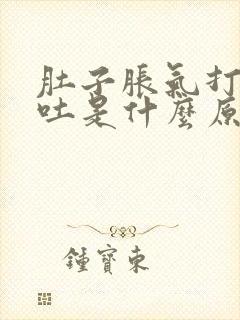 肚子脹氣打
吐是什麼原
鍾寶東